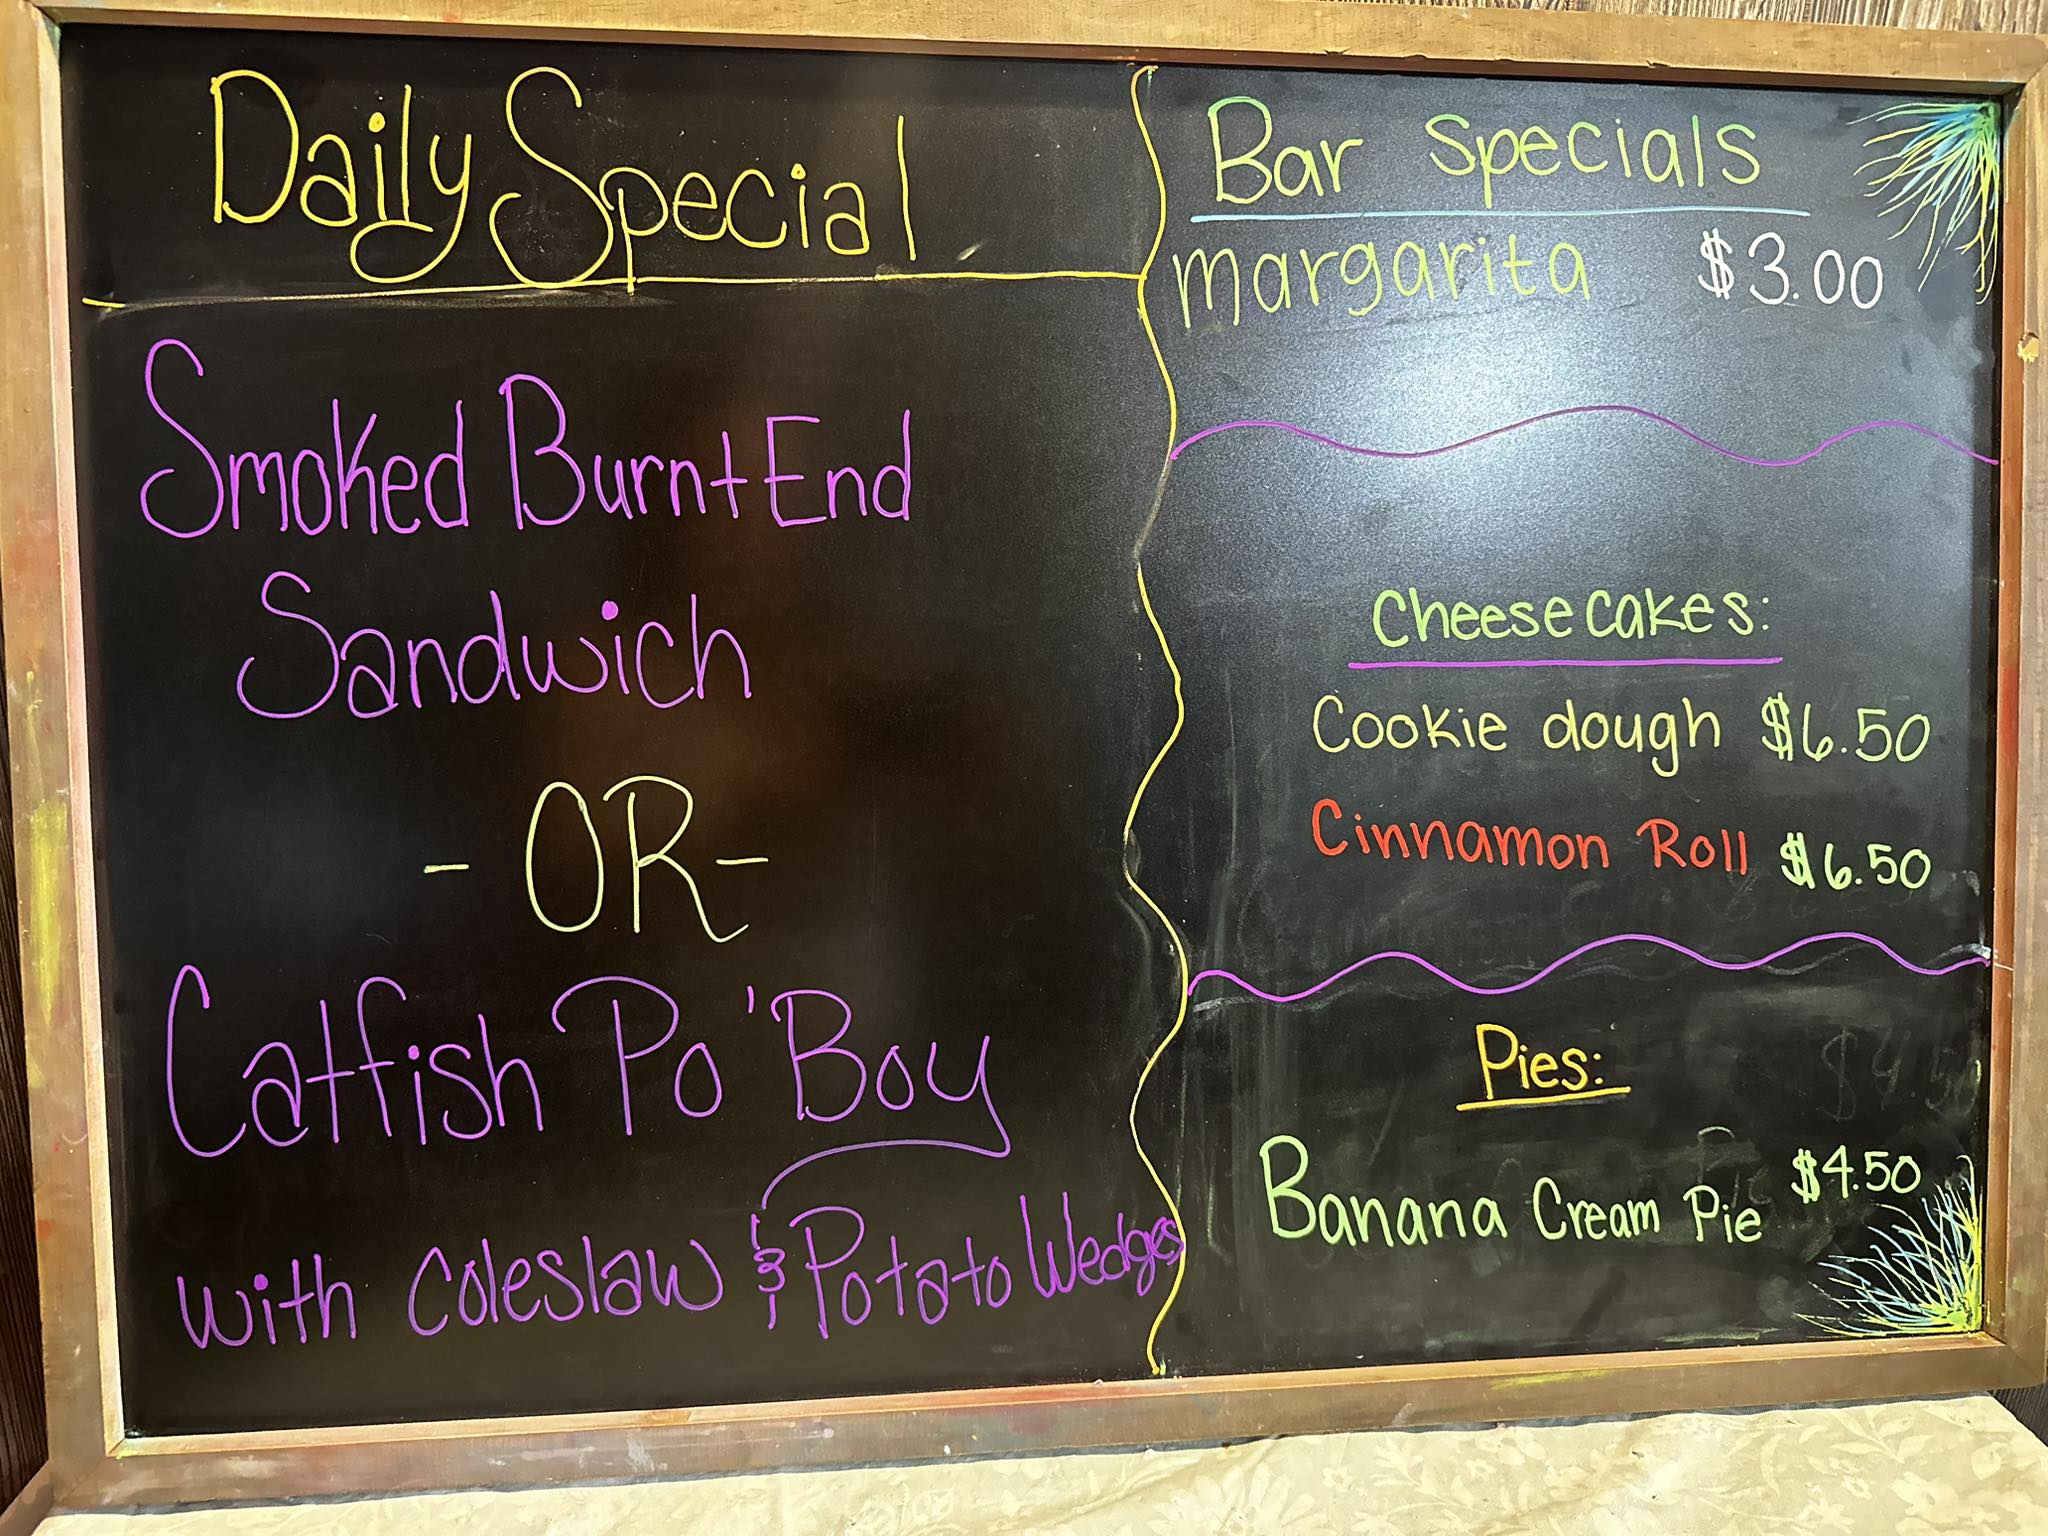 Daily Special
Smoked Burnt End
Sandwich
- OR -
Catfish Po'Boy
with Coleslaw & Potato Wedges
Bar Specials
margarita $3.00
Cheesecakes:
Cookie dough $6.50
Cinnamon Roll $6.50
Pies:
Banana Cream Pie $4.50